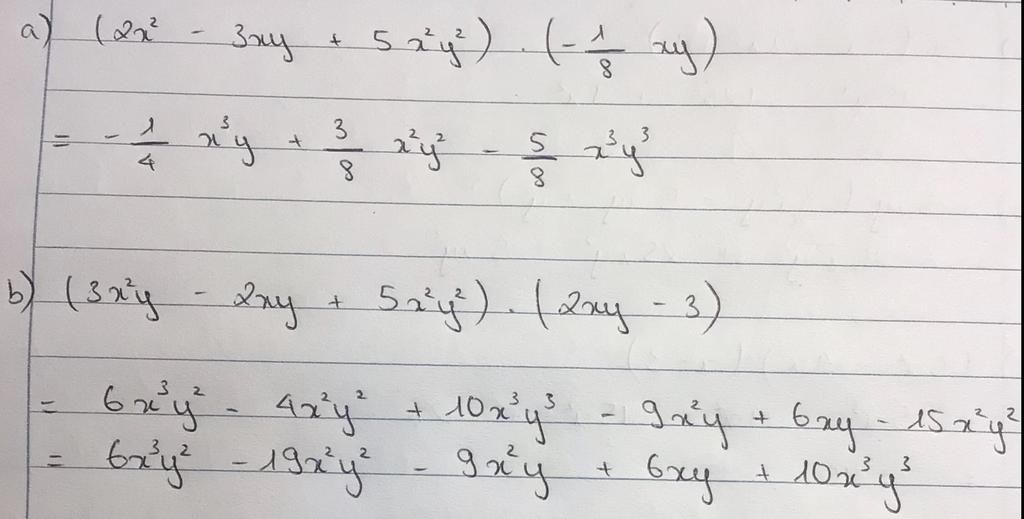 a) (2x² - 3xy + 5x²y²) . (-1/8 xy)
= -1/4 x³y + 3/8 x²y² - 5/8 x³y³
b) (3x²y - 2xy + 5x²y²) . (2xy - 3)
= 6x³y² - 4x²y² + 10x³y³ - 9x²y + 6xy - 15x²y²
= 6x³y² - 19x²y² - 9x²y + 6xy + 10x³y³